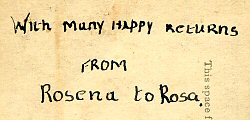 With many Happy Returns
FROM
Rosena to Rosa.
This space f